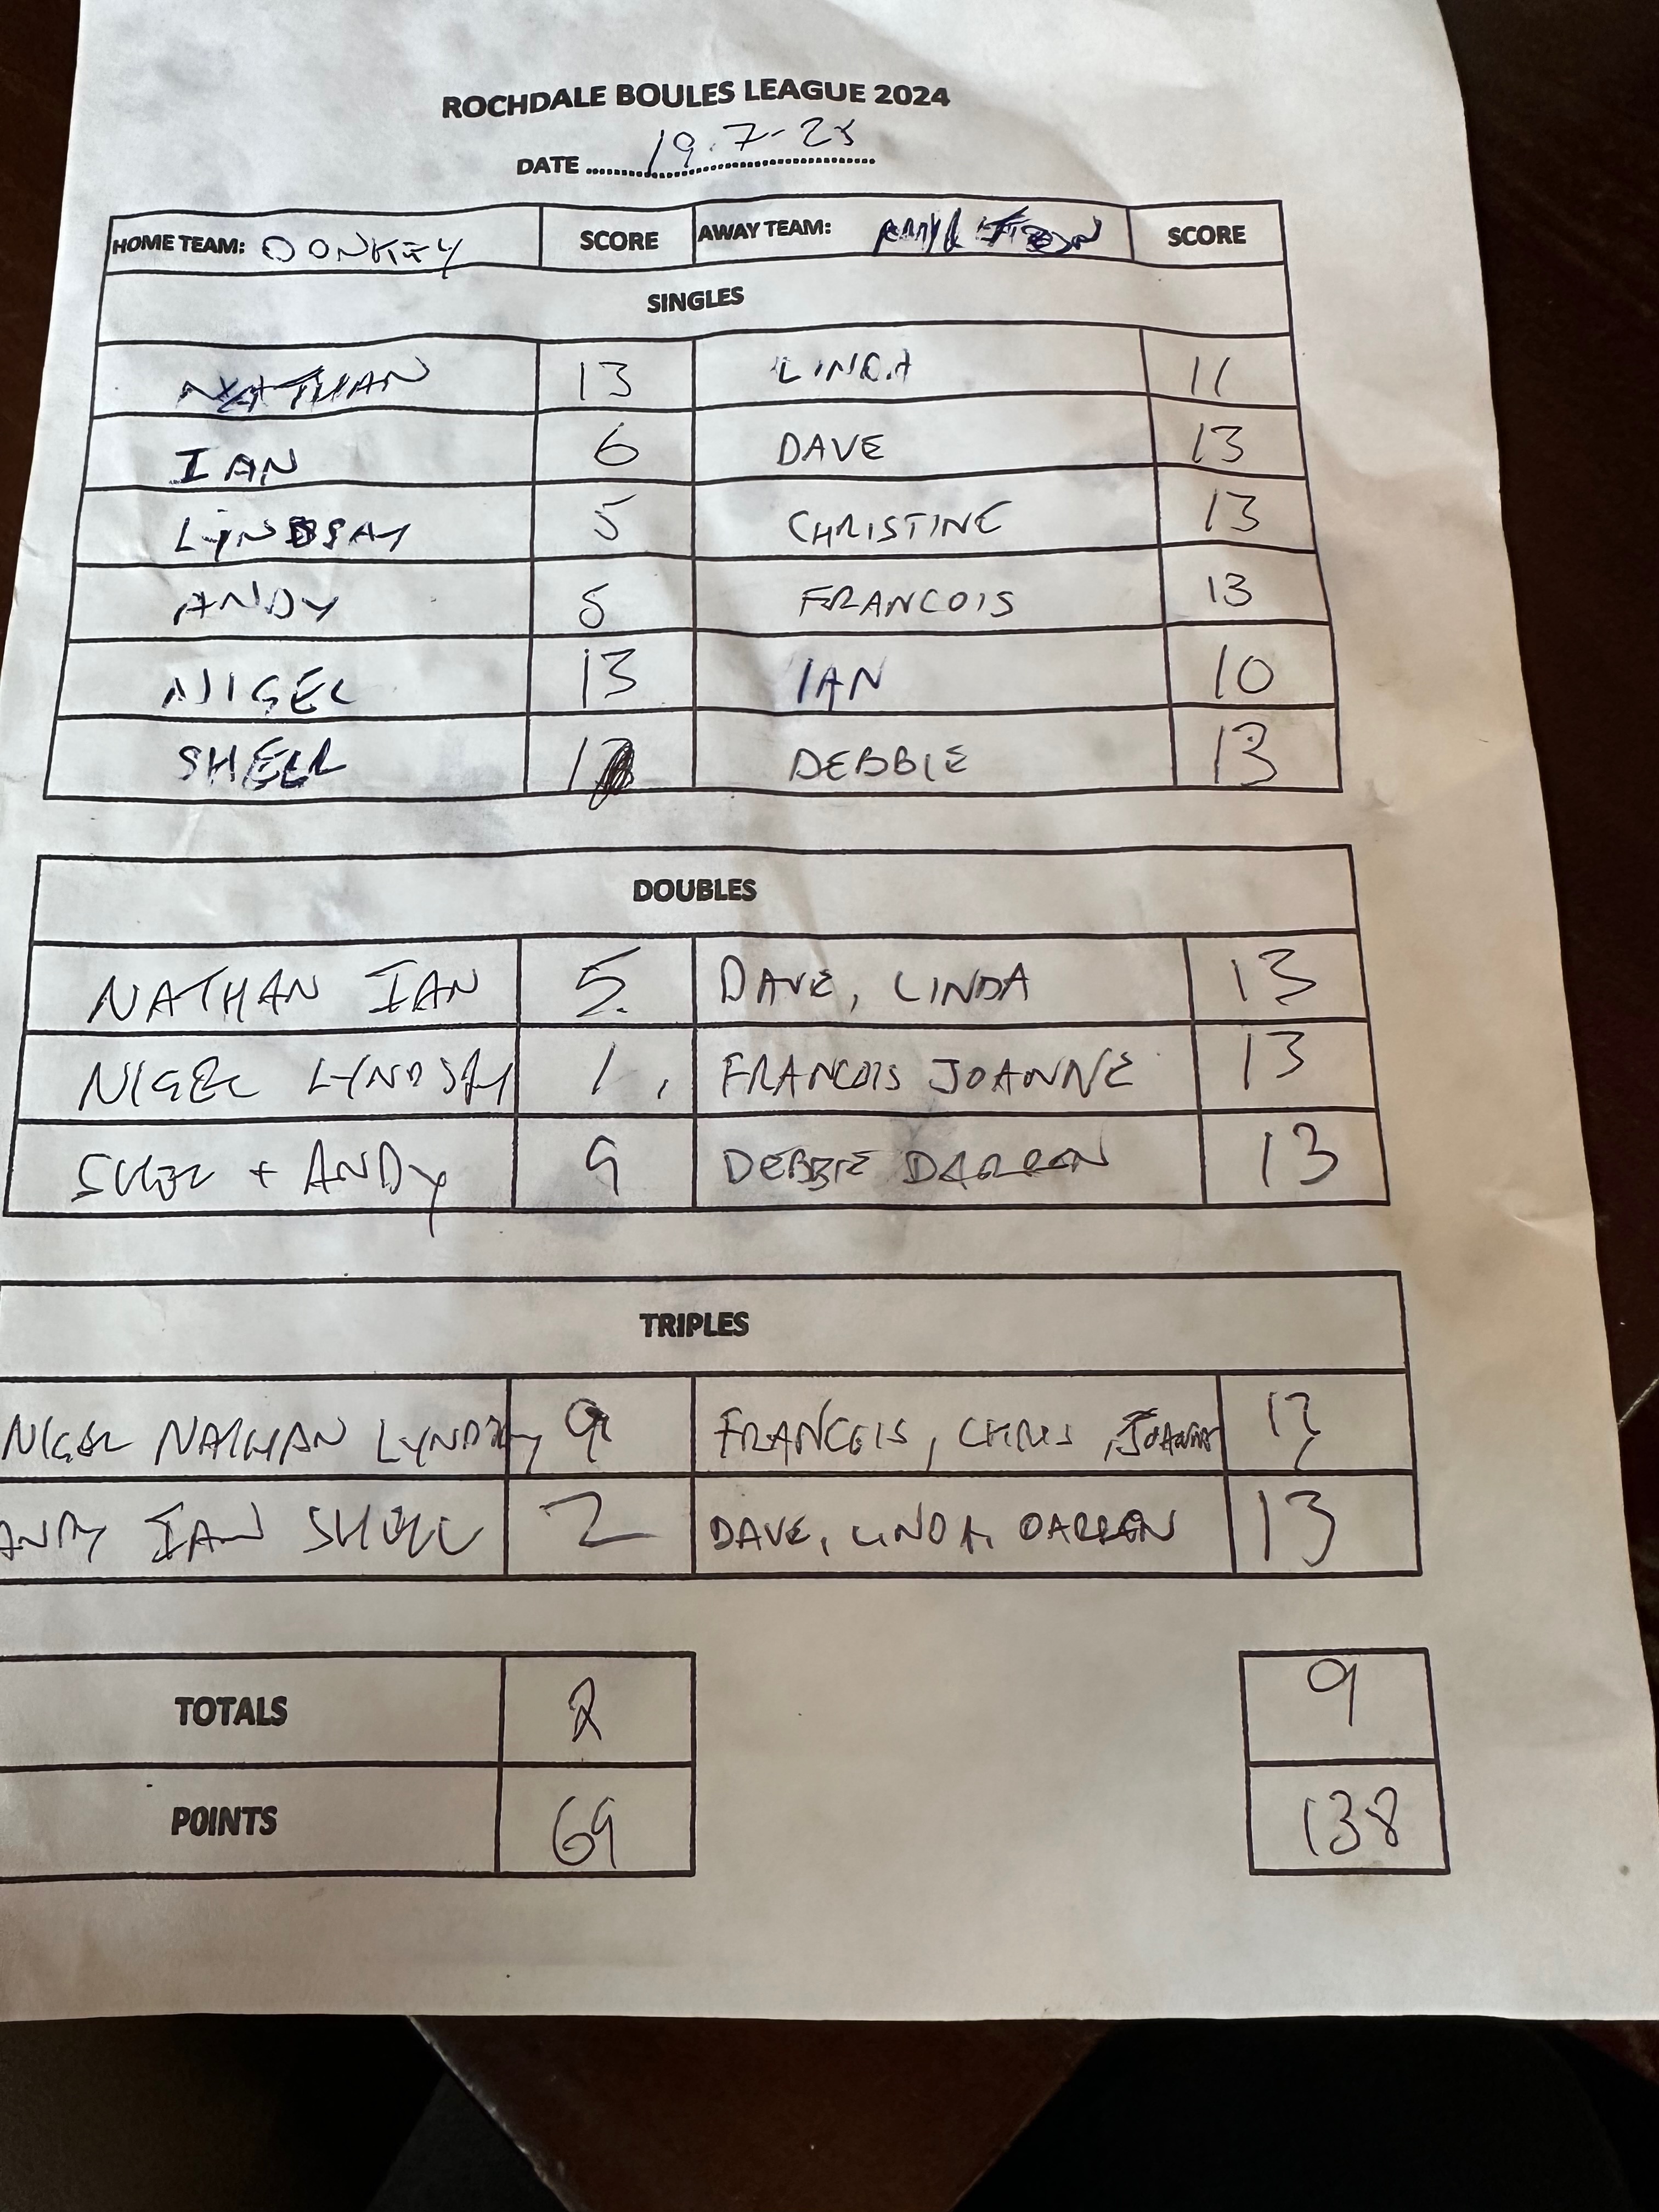 ROCHDALE BOULES LEAGUE 2024
DATE 19.7-25
HOME TEAM: DONKEY SCORE AWAY TEAM: SCORE
SINGLES
NATHAN 13 LINDA 11
IAN 6 DAVE 13
LYNDSAY 5 CHRISTINE 13
ANDY 5 FRANCOIS 13
NIGEL 13 IAN 10
SHELL 1 DEBBIE 13
DOUBLES
NATHAN IAN 5 DAVE, LINDA 13
NIGEL LYNDSAY 1 FRANCOIS JOANNE 13
SHELL + ANDY 9 DEBBIE DARREN 13
TRIPLES
NIGEL NATHAN LYNDSAY 9 FRANCOIS, CHRIS, JOANNE 13
ANDY IAN SHELL 2 DAVE, LINDA, DARREN 13
TOTALS 2 9
POINTS 69 138